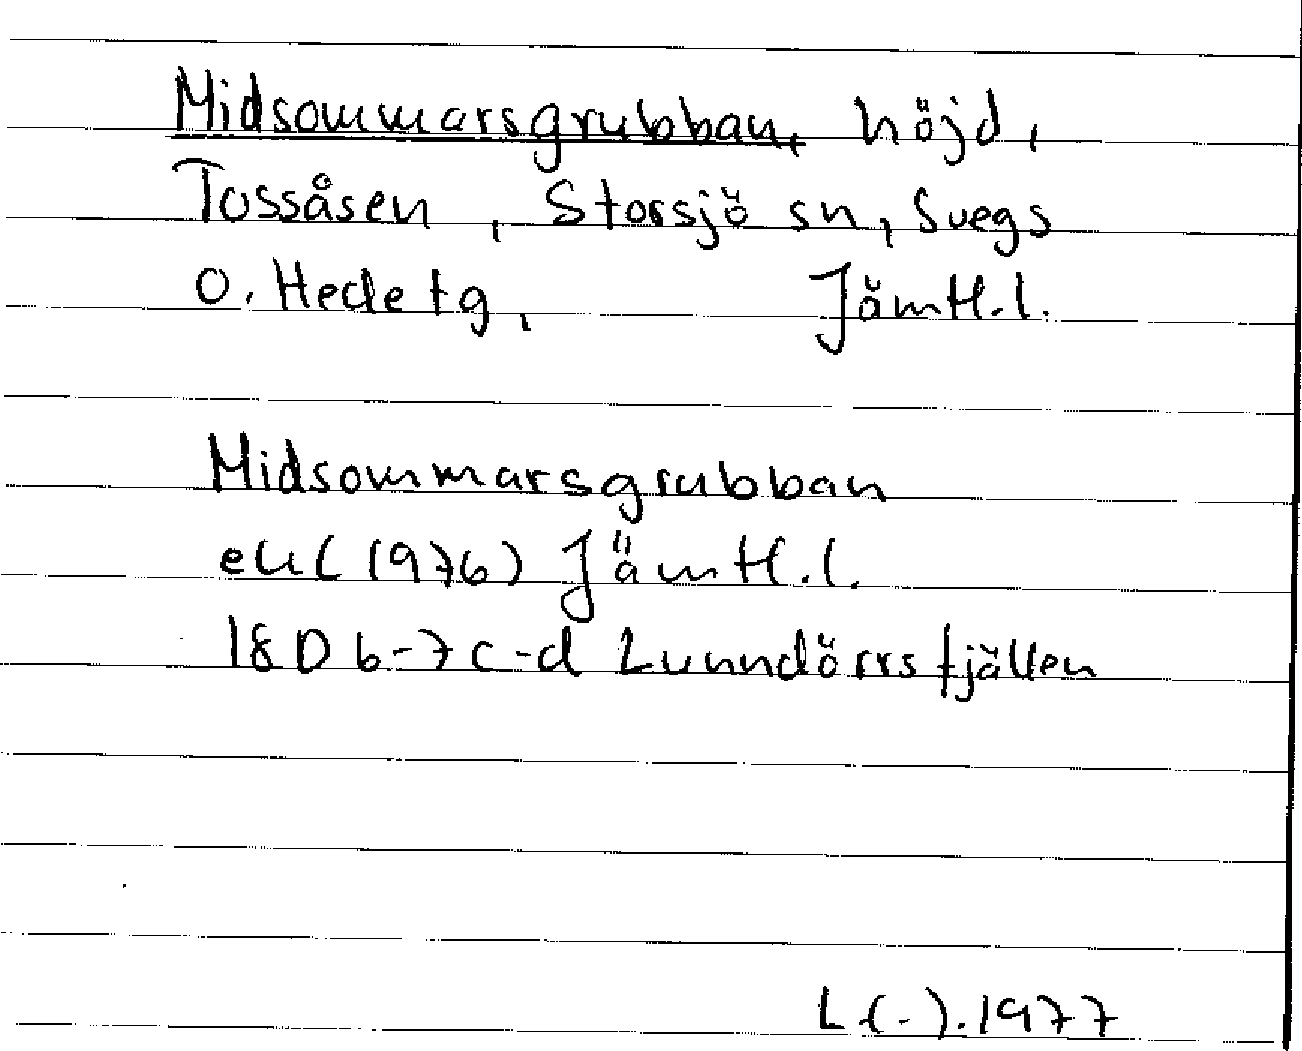 Midsommarsgrubban, höjd,
Tossåsen, Storsjö sn, Svegs
o. Hede tg, Jämtl. l.
Midsommarsgrubban
ek (1976) Jämtl. l.
18D 6-7 c-d Lunndörrsfjällen
L (-). 1977